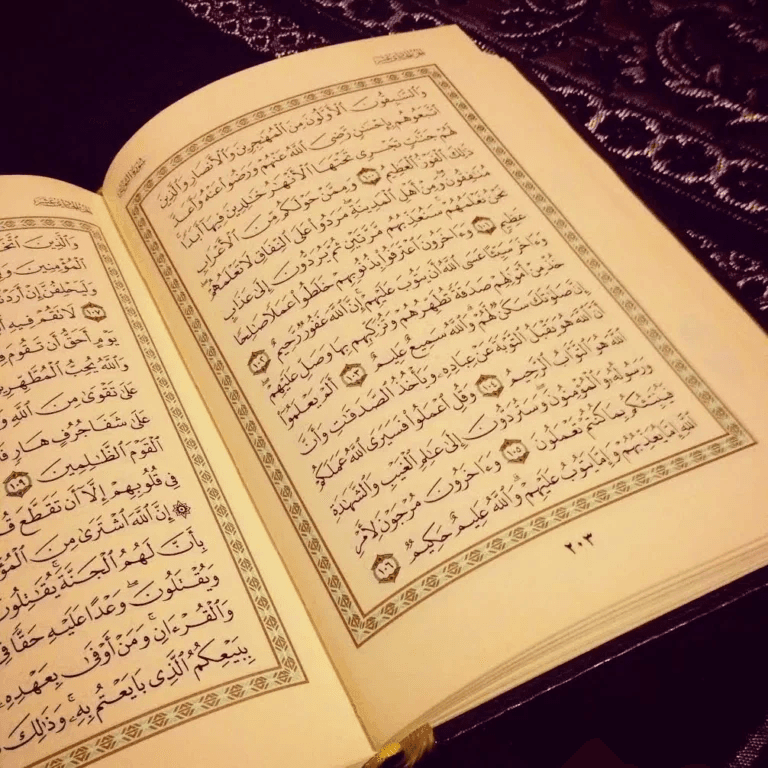 وَٱلسَّٰبِقُونَ ٱلْأَوَّلُونَ مِنَ ٱلْمُهَٰجِرِينَ وَٱلْأَنصَارِ وَٱلَّذِينَ
ٱتَّبَعُوهُم بِإِحْسَٰنٍ رَّضِىَ ٱللَّهُ عَنْهُمْ وَرَضُوا۟ عَنْهُ وَأَعَدَّ
لَهُمْ جَنَّٰتٍ تَجْرِى تَحْتَهَا ٱلْأَنْهَٰرُ خَٰلِدِينَ فِيهَآ أَبَدًا
ذَٰلِكَ ٱلْفَوْزُ ٱلْعَظِيمُ ١٠٠ وَمِمَّنْ حَوْلَكُم مِّنَ ٱلْأَعْرَابِ
مُنَٰفِقُونَ وَمِنْ أَهْلِ ٱلْمَدِينَةِ مَرَدُوا۟ عَلَى ٱلنِّفَاقِ لَا تَعْلَمُهُمْ
نَحْنُ نَعْلَمُهُمْ سَنُعَذِّبُهُم مَّرَّتَيْنِ ثُمَّ يُرَدُّونَ إِلَىٰ عَذَابٍ
عَظِيمٍ ١٠١ وَءَاخَرُونَ ٱعْتَرَفُوا۟ بِذُنُوبِهِمْ خَلَطُوا۟ عَمَلًا صَٰلِحًا
وَءَاخَرَ سَيِّئًا عَسَى ٱللَّهُ أَن يَتُوبَ عَلَيْهِمْ إِنَّ ٱللَّهَ غَفُورٌ رَّحِيمٌ ١٠٢
خُذْ مِنْ أَمْوَٰلِهِمْ صَدَقَةً تُطَهِّرُهُمْ وَتُزَكِّيهِم بِهَا وَصَلِّ عَلَيْهِمْ
إِنَّ صَلَوٰتَكَ سَكَنٌ لَّهُمْ وَٱللَّهُ سَمِيعٌ عَلِيمٌ ١٠٣ أَلَمْ يَعْلَمُوٓا۟
أَنَّ ٱللَّهَ هُوَ يَقْبَلُ ٱلتَّوْبَةَ عَنْ عِبَادِهِۦ وَيَأْخُذُ ٱلصَّدَقَٰتِ وَأَنَّ
ٱللَّهَ هُوَ ٱلتَّوَّابُ ٱلرَّحِيمُ ١٠٤ وَقُلِ ٱعْمَلُوا۟ فَسَيَرَى ٱللَّهُ عَمَلَكُمْ
وَرَسُولُهُۥ وَٱلْمُؤْمِنُونَ وَسَتُرَدُّونَ إِلَىٰ عَٰلِمِ ٱلْغَيْبِ وَٱلشَّهَٰدَةِ
فَيُنَبِّئُكُم بِمَا كُنتُمْ تَعْمَلُونَ ١٠٥ وَءَاخَرُونَ مُرْجَوْنَ لِأَمْرِ
ٱللَّهِ إِمَّا يُعَذِّبُهُمْ وَإِمَّا يَتُوبُ عَلَيْهِمْ وَٱللَّهُ عَلِيمٌ حَكِيمٌ ١٠٦
٢٠٣
وَٱلَّذِينَ
ٱلْمُؤْمِنِينَ
وَلَيَحْلِفُنَّ إِنْ أَرَدْ
١٠٧ لَا تَقُمْ فِيهِ
يَوْمٍ أَحَقُّ أَن تَقُومَ
وَٱللَّهُ يُحِبُّ ٱلْمُطَّهِّرِينَ
عَلَىٰ تَقْوَىٰ مِنَ ٱللَّهِ
عَلَىٰ شَفَا جُرُفٍ هَارٍ
ٱلْقَوْمَ ٱلظَّٰلِمِينَ ١٠٩
فِى قُلُوبِهِمْ إِلَّآ أَن تَقَطَّعَ
۞ إِنَّ ٱللَّهَ ٱشْتَرَىٰ مِنَ
بِأَنَّ لَهُمُ ٱلْجَنَّةَ يُقَٰتِلُونَ
وَيُقْتَلُونَ وَعْدًا عَلَيْهِ حَقًّا فِى
وَٱلْقُرْءَانِ وَمَنْ أَوْفَىٰ بِعَهْدِهِۦ
بِبَيْعِكُمُ ٱلَّذِى بَايَعْتُم بِهِۦ وَذَٰلِكَ